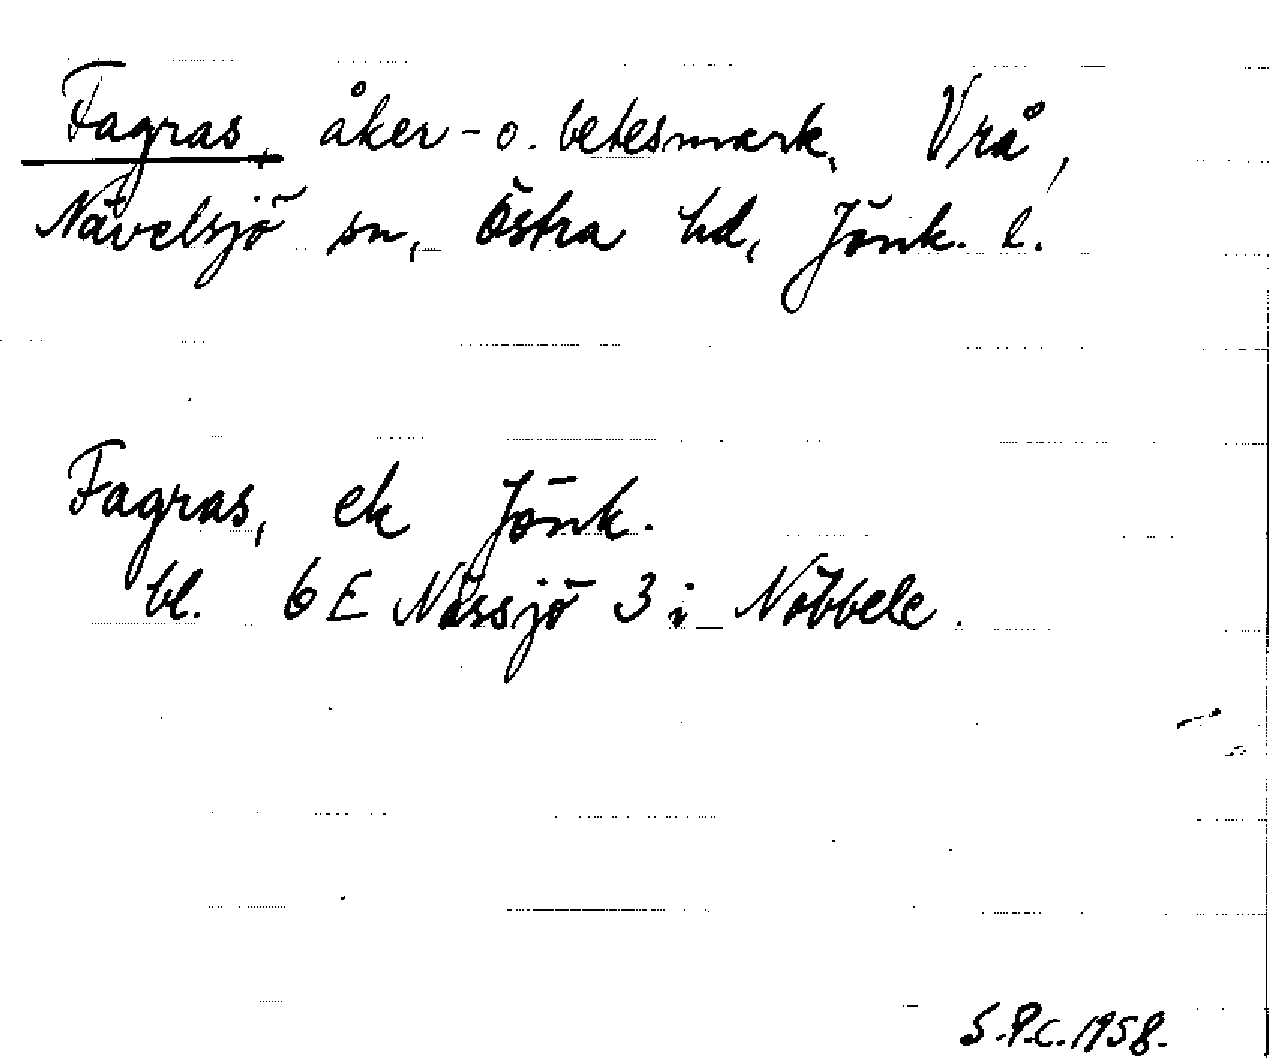 Fagras, åker- o. betesmark, Vrå,
Nävelsjö sn, Östra hd, Jönk. l.
Fagras, ek Jönk.
bl. 6 E Nässjö 3 i Nöbbele.
S.P.C. 1958.